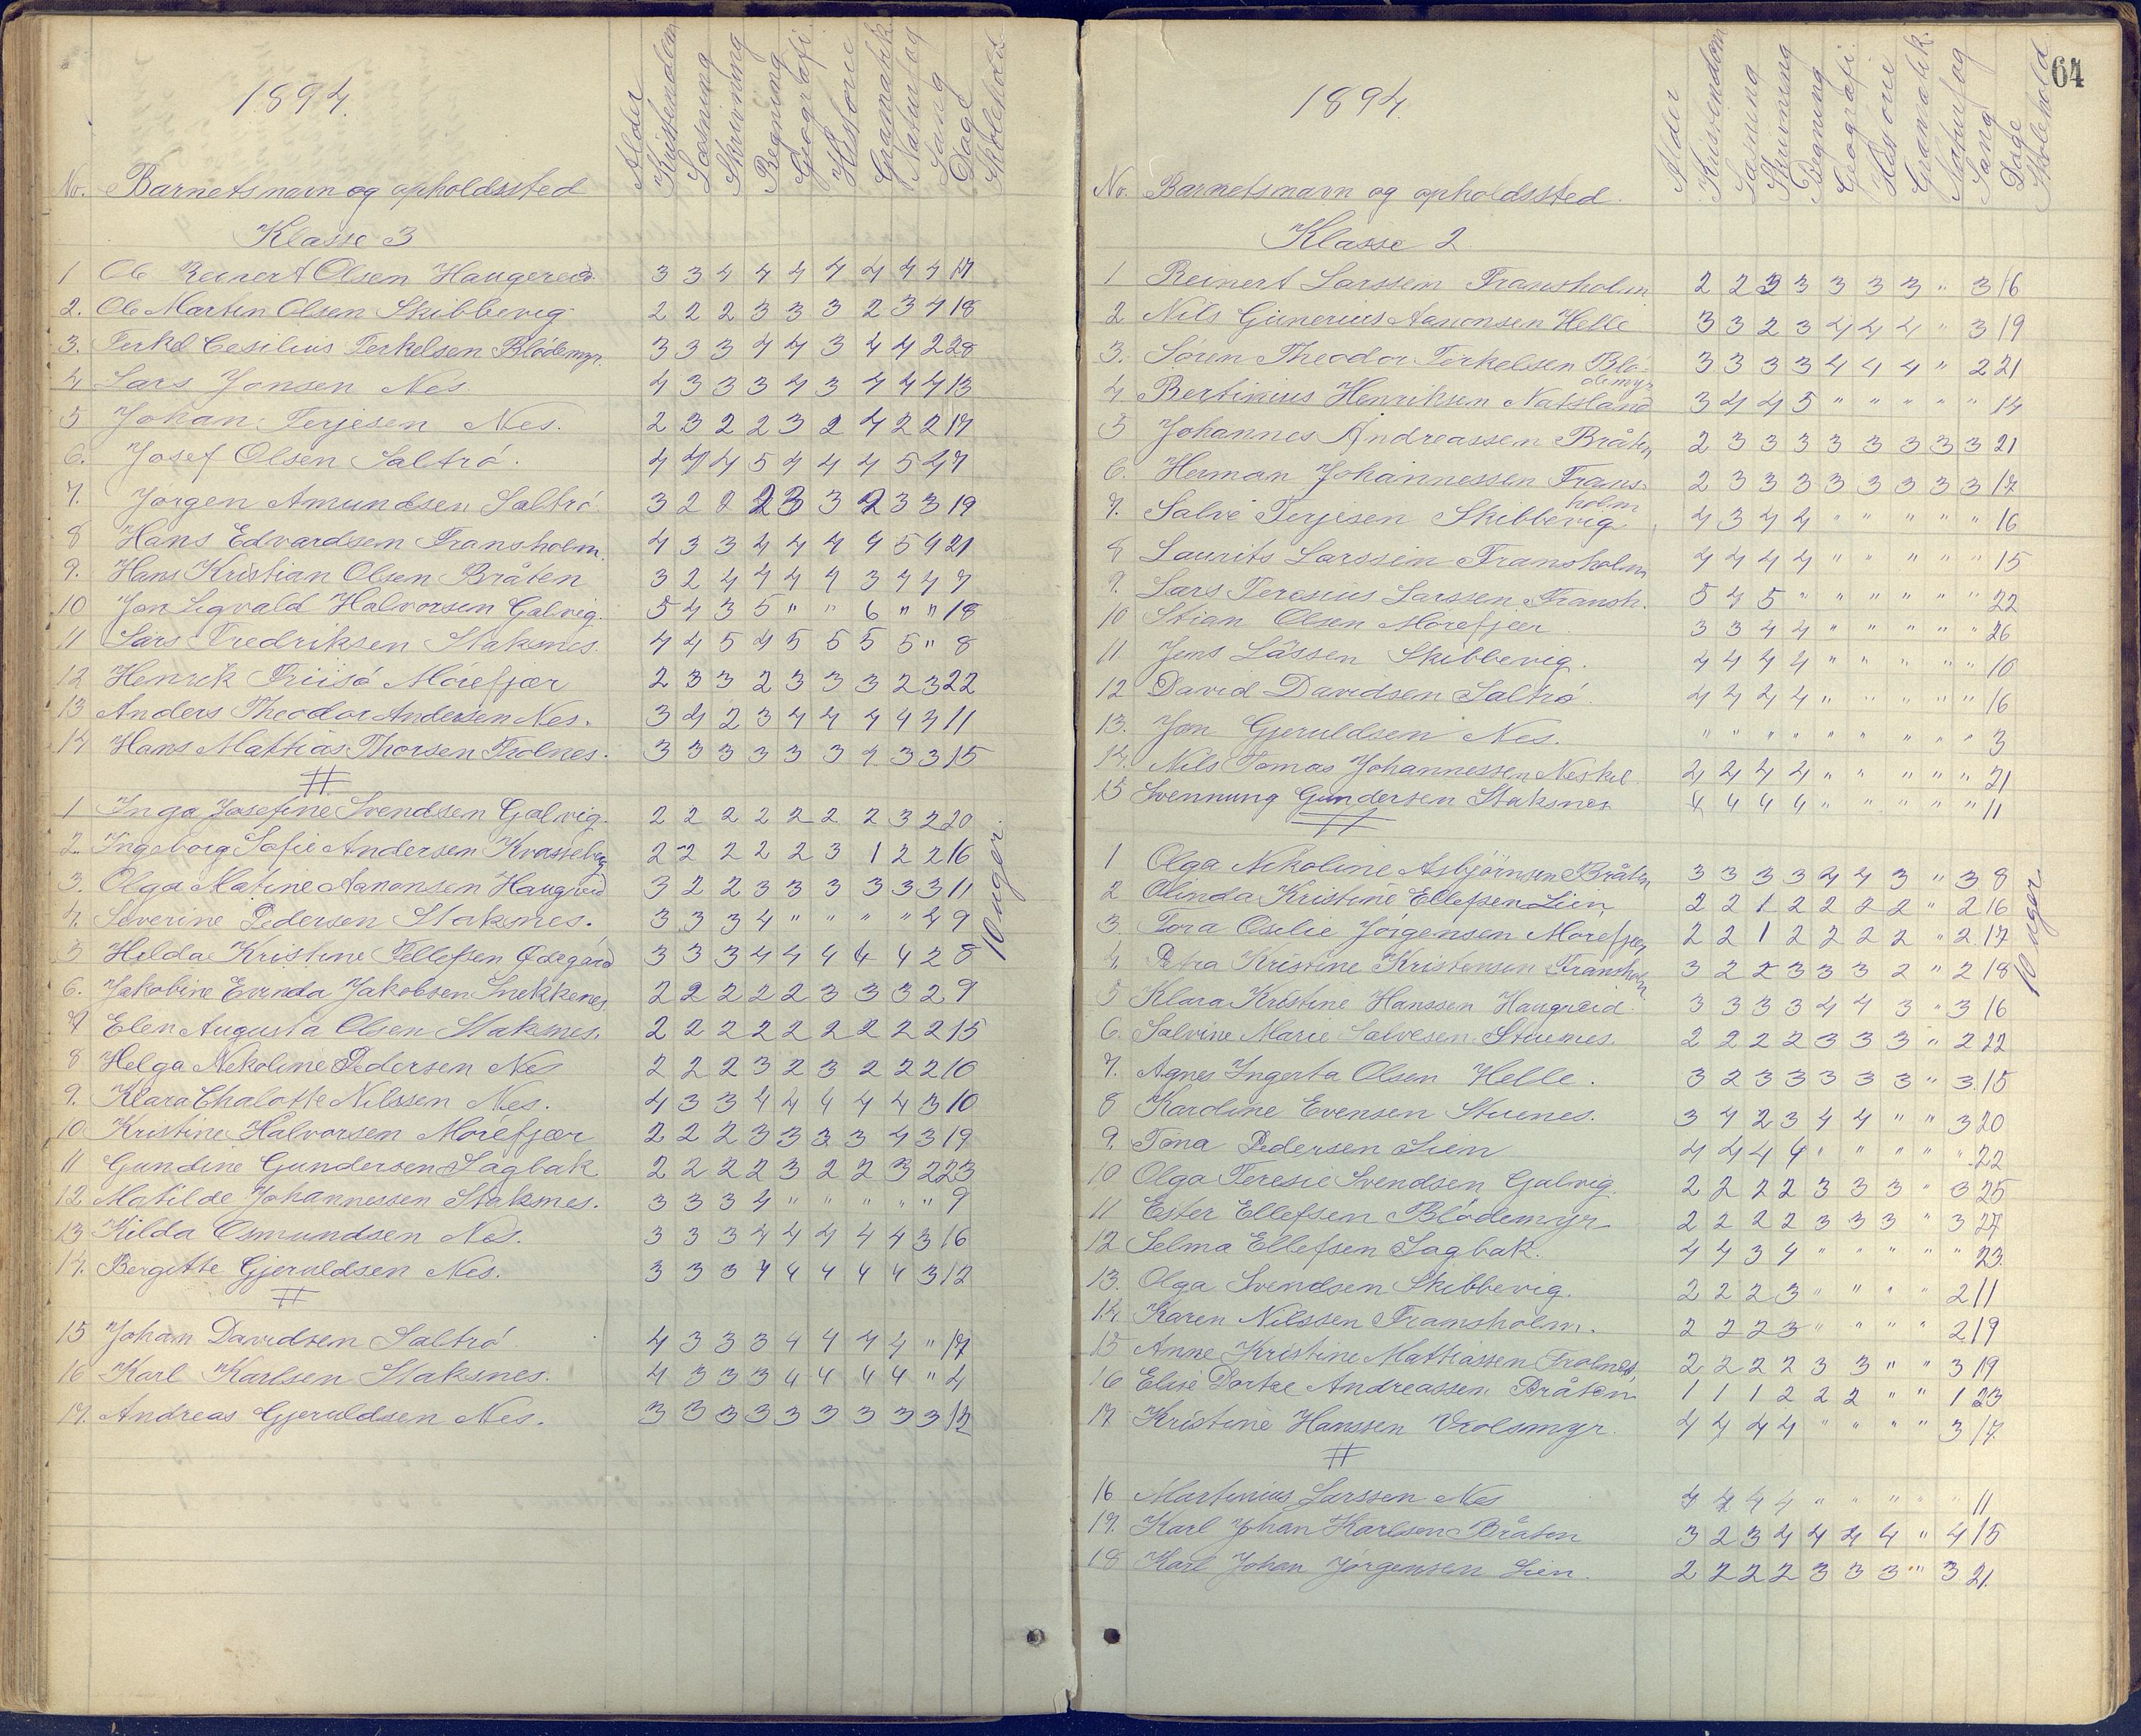 1894.
No. Barnets navn og opholdssted Alder Kristendom Læsning Skrivning Regning Geografi Historie Grammatik Naturfag Sang Dage Skolehold
Klasse 3
1 Ole Reinert Olsen Haugereid. 3 3 4 4 4 4 4 4 4 17
2. Ole Martin Olsen Skibbevig 2 2 2 3 3 3 2 3 4 18
3. Terkel Cesilius Terkelsen Blödemyr. 3 3 3 4 4 3 4 4 2 28
4 Lars Jonsen Nes 4 3 3 3 4 3 4 4 4 13
5 Johan Terjesen Nes. 2 3 2 2 3 2 4 2 2 17
6. Josef Olsen Saltrö. 4 4 4 5 4 4 4 5 4 7
7. Jörgen Amundsen Saltrö 3 2 2 2 3 3 2 3 3 19
8 Hans Edvardsen Fransholm. 4 3 3 4 4 4 4 5 4 21
9. Hans Kristian Olsen Bråten 3 2 4 4 4 4 3 4 4 7
10 Jon Sigvald Halvorsen Galvig. 5 4 3 5 " " 6 " " 18
11 Lars Fredriksen Staksnes. 4 4 5 4 5 5 5 5 " 8
12 Henrik Friisö Mörefjær 2 3 3 2 3 3 3 2 3 22
13 Anders Theodor Andersen Nes. 3 4 2 3 4 4 4 4 3 11
14 Hans Mattias Thorsen Trolnes. 3 3 3 3 3 3 4 3 3 15
1 Inga Josefine Svendsen Galvig. 2 2 2 2 2 2 2 3 2 20
2. Ingeborg Sofie Andersen 2 2 2 2 2 3 1 2 2 16
3. Olga Matine Aanonsen Haugreid 3 2 2 3 3 3 3 3 3 11
4. Severine Pedersen Staksnes. 3 3 3 4 " " " " 4 9
5 Hilda Kristine Tellefsen Ødegård 3 3 3 4 4 4 4 4 2 8
6. Jakobine Evinda Jakobsen Snekkenes. 2 2 2 2 2 3 3 3 2 9
7 Elen Augusta Olsen Staksnes. 2 2 2 2 2 2 2 2 2 15
8 Helga Nikoline Pedersen Nes 2 2 2 3 2 3 2 2 2 10
9. Klara Chalotte Nilssen Nes. 4 3 3 4 4 4 4 4 3 10
10 Kristine Halvorsen Mörefjær 2 2 2 3 3 3 3 4 3 19
11 Gundine Gundersen Sagbak 2 2 2 2 3 2 2 3 2 23
12 Matilde Johannessen Staksnes. 3 3 3 4 " " " " " 9
13 Kilda Osmundsen Nes. 3 3 3 4 4 4 4 4 3 16
14. Bergitte Gjeruldsen Nes. 3 3 3 4 4 4 4 4 3 12
10 uger.
15 Johan Davidsen Saltrö 4 3 3 3 4 4 4 4 " 17
16 Karl Karlsen Staksnes. 4 3 3 3 4 4 4 4 " 4
17. Andreas Gjeruldsen Nes. 3 3 3 3 3 3 3 3 3 12
64
1894.
No. Barnets navn og opholdssted. Alder Kristendom Læsning Skrivning Regning Geografi. Historie Gramatik. Naturfag Sang Dage Skolehold
Klasse 2.
1 Reinert Larssen Fransholm 2 2 3 3 3 3 3 " 3 16
2 Nils Gunerius Aanonsen Helle 3 3 2 3 4 4 4 " 3 19
3. Sören Theodor Terkelsen Blö- 3 3 3 3 4 4 4 " 2 21
demyr
4. Bertinius Henriksen Naksland 3 4 4 5 " " " " " 14
5 Johannes Andreassen Bråten 2 3 3 3 3 3 3 3 3 21
6. Herman Johannessen Frans- 2 3 3 3 3 3 3 3 3 17
holm
7. Salve Terjesen Skibbevig 4 3 4 4 " " " " " 16
8 Laurits Larssen Fransholm 4 4 4 4 " " " " " 15
9. Lars Teresius Larssen Fransh. 5 4 5 " " " " " " 22
10 Stian Olsen Mörefjær 3 3 4 4 " " " " " 26
11 Jens Lassen Skibbevig. 4 4 4 4 " " " " " 10
12 David Davidsen Saltrö. 4 4 4 4 " " " " " 16
13. Jon Gjeruldsen Nes. " " " " " " " " " 3
14. Nils Tomas Johannessen Neskil 4 4 4 4 " " " " " 21
15 Svennung Gundersen Staksnes 4 4 4 4 " " " " " 11
1 Olga Nikoline Asbjörnsen Bråten 3 3 3 3 4 4 3 " 3 8
2 Olinda Kristine Ellefsen Lien 2 2 1 2 2 2 2 " 2 16
3. Tora Oselie Jörgensen Mörefjær 2 2 1 2 2 2 2 " 2 17
4. Petra Kristine Kristensen Fransholm 3 2 2 3 3 3 2 " 2 18
5 Klara Kristine Hanssen Haugreid. 3 3 3 3 4 4 3 " 3 16
6. Salvine Marie Salvesen Stuenes. 2 2 2 2 3 3 3 " 2 22
7. Agnes Ingerta Olsen Helle. 3 2 3 3 3 3 3 " 3 15
8 Kardine Evensen Stuenes. 3 4 2 3 4 4 " " 3 20
9. Tona Pedersen Lien 4 4 4 4 " " " " " 22
10 Olga Teresie Svendsen Galvig. 2 2 2 2 3 3 3 " 3 25
11 Ester Ellefsen Blödemyr 2 2 2 2 3 3 3 " 3 27
12 Selma Ellefsen Sagbak. 4 4 3 4 " " " " " 23.
13. Olga Svendsen Skibbevig. 2 2 2 3 " " " " 2 11
14 Karen Nilssen Fransholm. 2 2 2 3 " " " " 2 19
15 Anne Kristine Mattiassen Trolnes. 2 2 2 2 3 3 " " 3 19
16 Elise Dortæ Andreassen Bråten 1 1 1 2 2 2 " " 1 23
17 Kristine Hanssen Vrolsmyr. 4 4 4 4 " " " " 3 17
10 uger
16 Martinius Larssen Nes 4 4 4 4 " " " " " 11
17. Karl Johan Karlsen Bråten 3 2 3 4 4 4 4 " 4 15
18 Karl Johan Jörgensen Lien. 2 2 2 2 3 3 3 " 3 21.